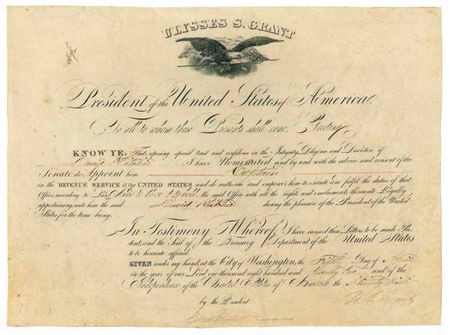 ULYSSES S. GRANT
President of the United States of America.
To all to whom these Presents shall come, Greeting:
KNOW YE, That reposing special trust and confidence in the Integrity, Diligence and Discretion of
I have Nominated and by and with the advice and consent of the
Senate do Appoint him Captain
in the REVENUE SERVICE of the UNITED STATES and do authorize and empower him to execute and fulfil the duties of that
Office according to Law And to Have and to Hold the said Office with all the rights and emoluments thereunto legally
appertaining unto him the said during the pleasure of the President of the United
States for the time being.
In Testimony Whereof I have caused these Letters to be made Pa-
tent, and the Seal of the Treasury Department of the United States
to be hereunto affixed.
GIVEN under my hand, at the City of Washington, the Day of
in the year of our Lord one thousand eight hundred and Seventy two and of the
Independence of the United States of America the Ninety
by the President